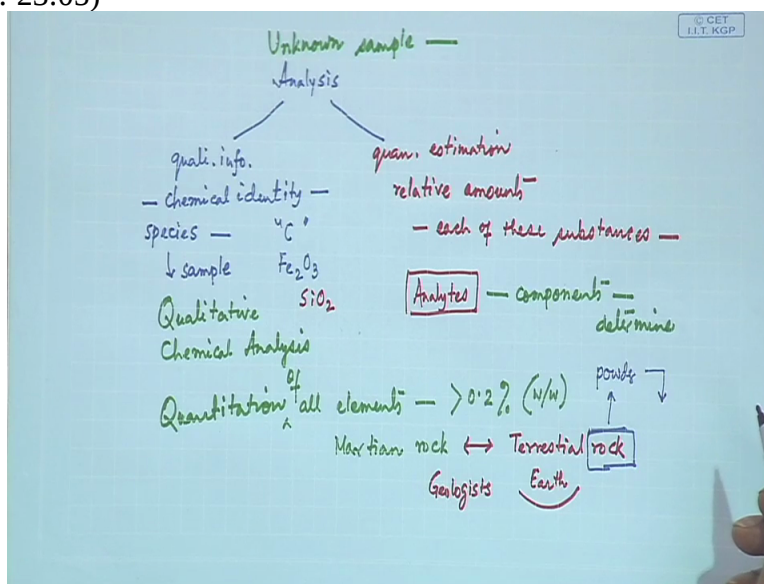 : 23:05)
© CET
I.I.T. KGP
Unknown sample —
Analysis
quali. info.
— chemical identity —
species — "C"
↓ sample Fe2O3
SiO2
Qualitative
Chemical Analysis
quan. estimation
relative amounts —
— each of these substances —
Analytes — components —
determine
Quantitation of all elements — >0.2% (W/W)
Martian rock ↔ Terrestial rock
Geologists Earth
powde